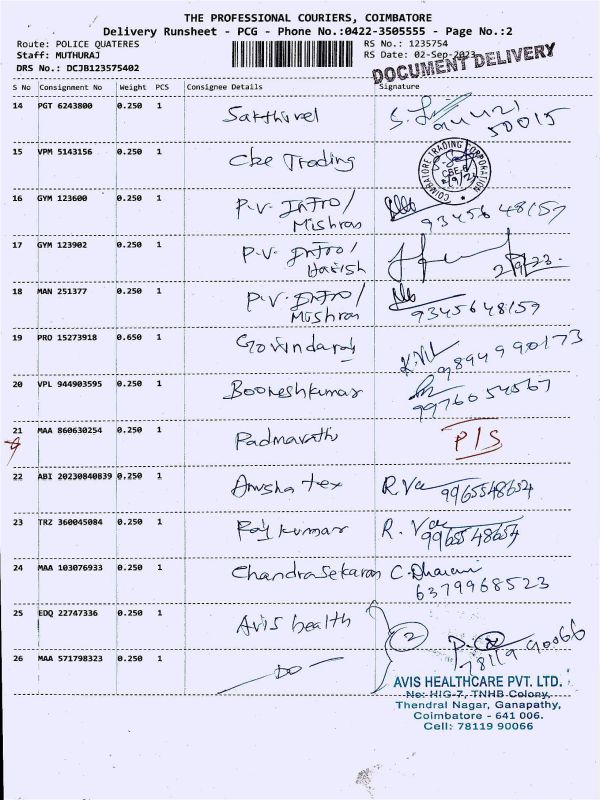 THE PROFESSIONAL COURIERS, COIMBATORE
Delivery Runsheet - PCG - Phone No.:0422-3505555 - Page No.:2
Route: POLICE QUATERES
Staff: MUTHURAJ
DRS No.: DCJB123575402
RS No.: 1235754
RS Date: 02-Sep-2023
DOCUMENT DELIVERY
S No Consignment No Weight PCS Consignee Details Signature
14 PGT 6243800 0.250 1 Sakthivel
94421
50015
15 VPM 5143156 0.250 1 Cbe Trading
COIMBATORE TRADING CORPORATION
CBE-6
16 GYM 123600 0.250 1 P.V. Intro/
Mishran 93456 48159
17 GYM 123902 0.250 1 P.V. Intro/
Harish 2/9/23.
18 MAN 251377 0.250 1 P.V. Intro/
Mishran 9345648159
19 PRO 15273918 0.650 1 Govindaraj
9894990173
20 VPL 944903595 0.250 1 Booneshkumar
9976054567
21 MAA 860630254 0.250 1 Padmavathi P/S
22 ABI 20230840839 0.250 1 Anusha tex 9965548654
23 TRZ 360045084 0.250 1 Rajkumar 9965548654
24 MAA 103076933 0.250 1 Chandrasekaran C. Dharani
6379968523
25 EDQ 22747336 0.250 1 Avis health 2
78119 90066
26 MAA 571798323 0.250 1 - DO -
AVIS HEALTHCARE PVT. LTD.
No: HIG-7, TNHB Colony,
Thendral Nagar, Ganapathy,
Coimbatore - 641 006.
Cell: 78119 90066